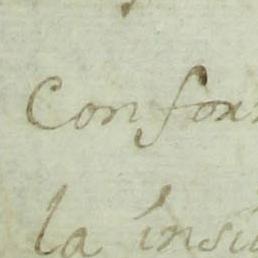 Confor
la insi